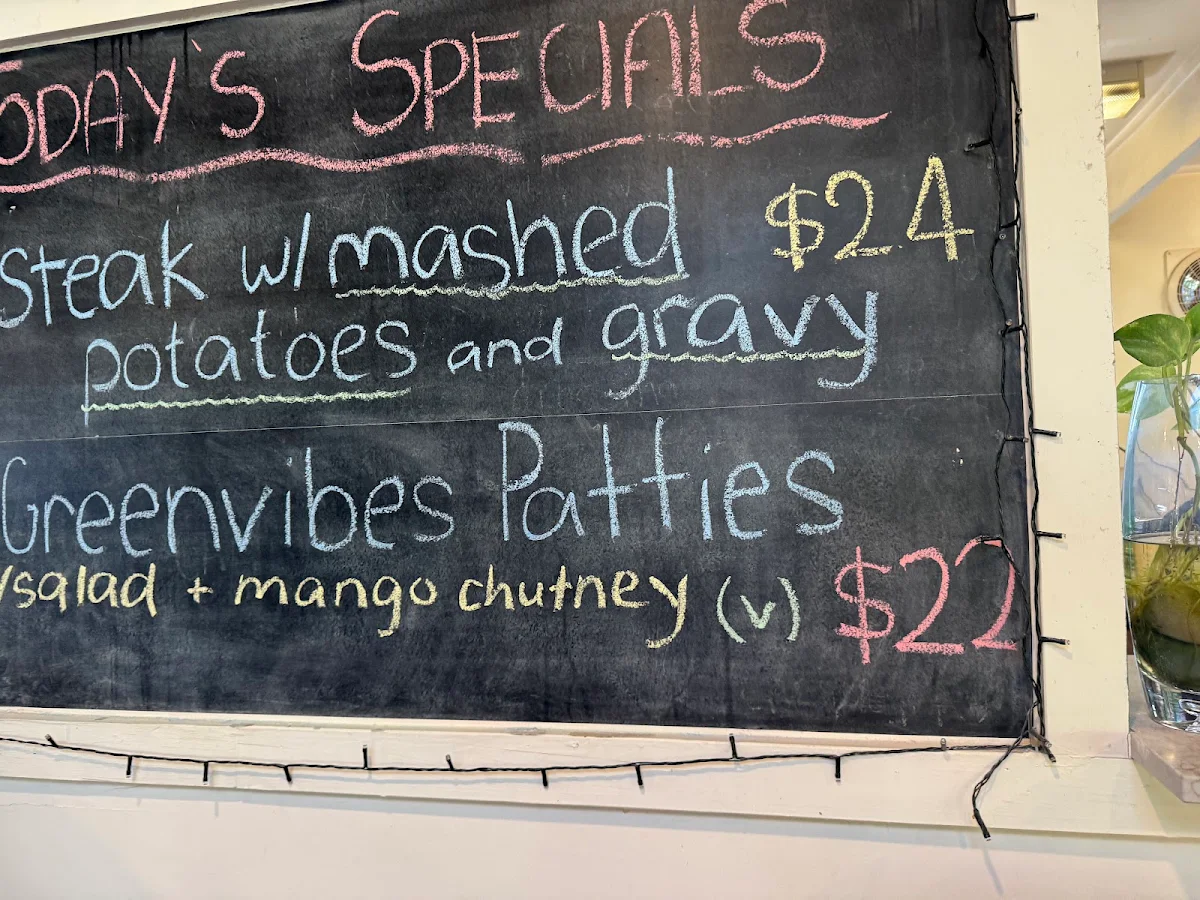 TODAY'S SPECIALS
Steak w/ mashed $24
potatoes and gravy
Greenvibes Patties
/salad + mango chutney (v) $22